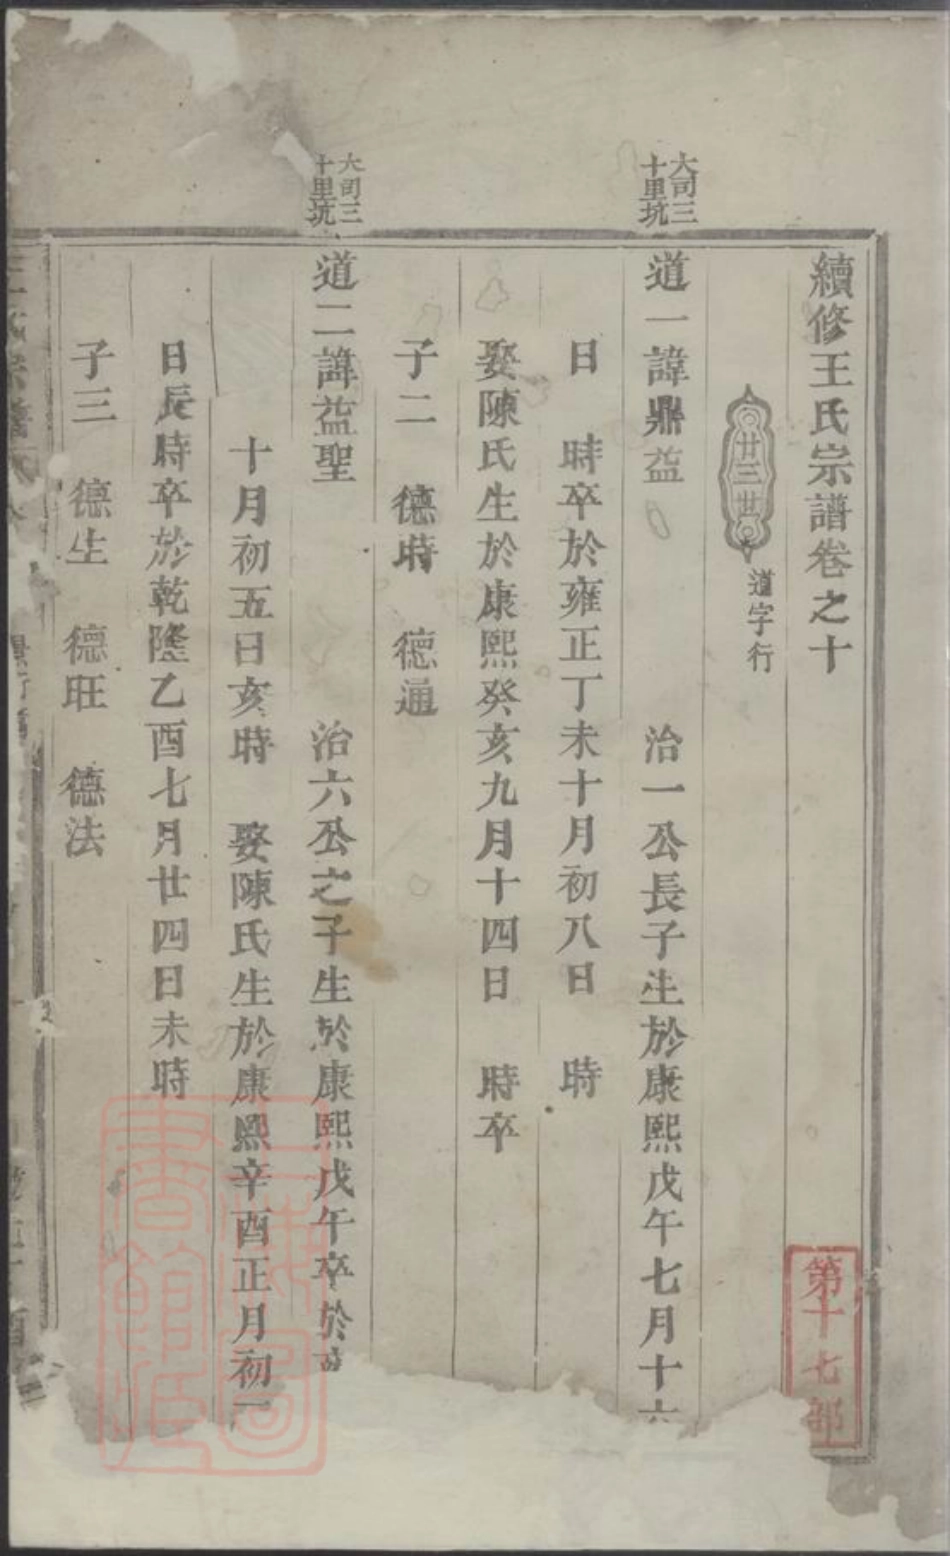 續修王氏宗譜卷之十
第十七部
廿三世
道字行
大司三
十里坑
道一諱鼎益 治一公長子生於康熙戊午七月十六
日 時卒於雍正丁未十月初八日 時
娶陳氏生於康熙癸亥九月十四日 時卒
子二 德時 德通
大司三
十里坑
道二諱益聖 治六公之子生於康熙戊午卒於
十月初五日亥時 娶陳氏生於康熙辛酉正月初
日辰時卒於乾隆乙酉七月廿四日未時
子三 德生 德旺 德法